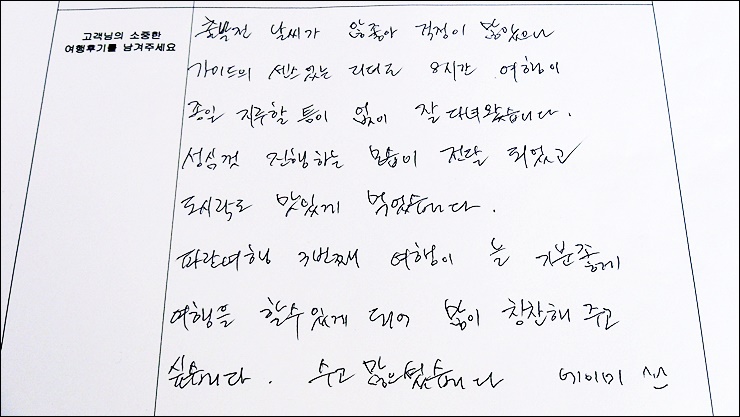 고객님의 소중한
여행후기를 남겨주세요
출발전 날씨가 않좋아 걱정이 많았으나
가이드의 센스있는 리더로 8시간 여행이
종일 지루할 틈이 없이 잘 다녀왔습니다.
성심껏 진행하는 모습이 전달 되었고
도시락도 맛있게 먹었습니다.
파란여행 3번째 여행이 늘 기분좋게
여행을 할수있게 되어 많이 칭찬해 주고
싶습니다. 수고 많으셨습니다